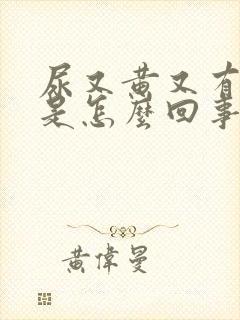 尿又黃又有
是怎麼回事
黃偉曼